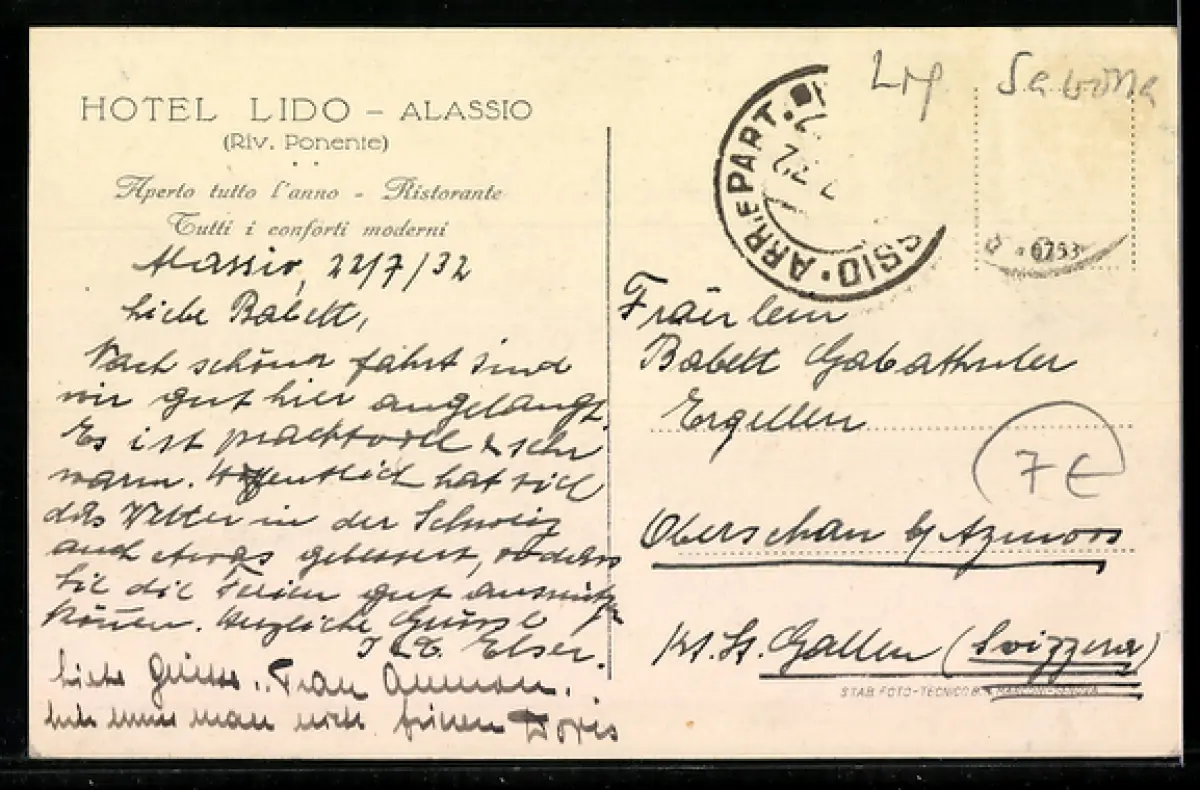 HOTEL LIDO – ALASSIO
(Riv. Ponente)
Aperto tutto l'anno - Ristorante
Tutti i conforti moderni
Alassio, 22/7/32
Liebe Babett,
Nach schöner Fahrt sind
wir gut hier angelangt.
Es ist prachtvoll & sehr
warm. Hoffentlich hat sich
das Wetter in der Schweiz
auch etwas gebessert, sodass
Sie die Ferien gut ausnützen
können. Herzliche Grüsse
Elser.
Liebe Grüsse Frau
man mich Doris
ARR. E PART.
SSIO
Savona
6253
Fräulein
Babett Gabathuler
Ergellen
7 €
Oberschan b/ Azmoos
Kt. St. Gallen (Svizzera)
STAB. FOTO-TECNICO